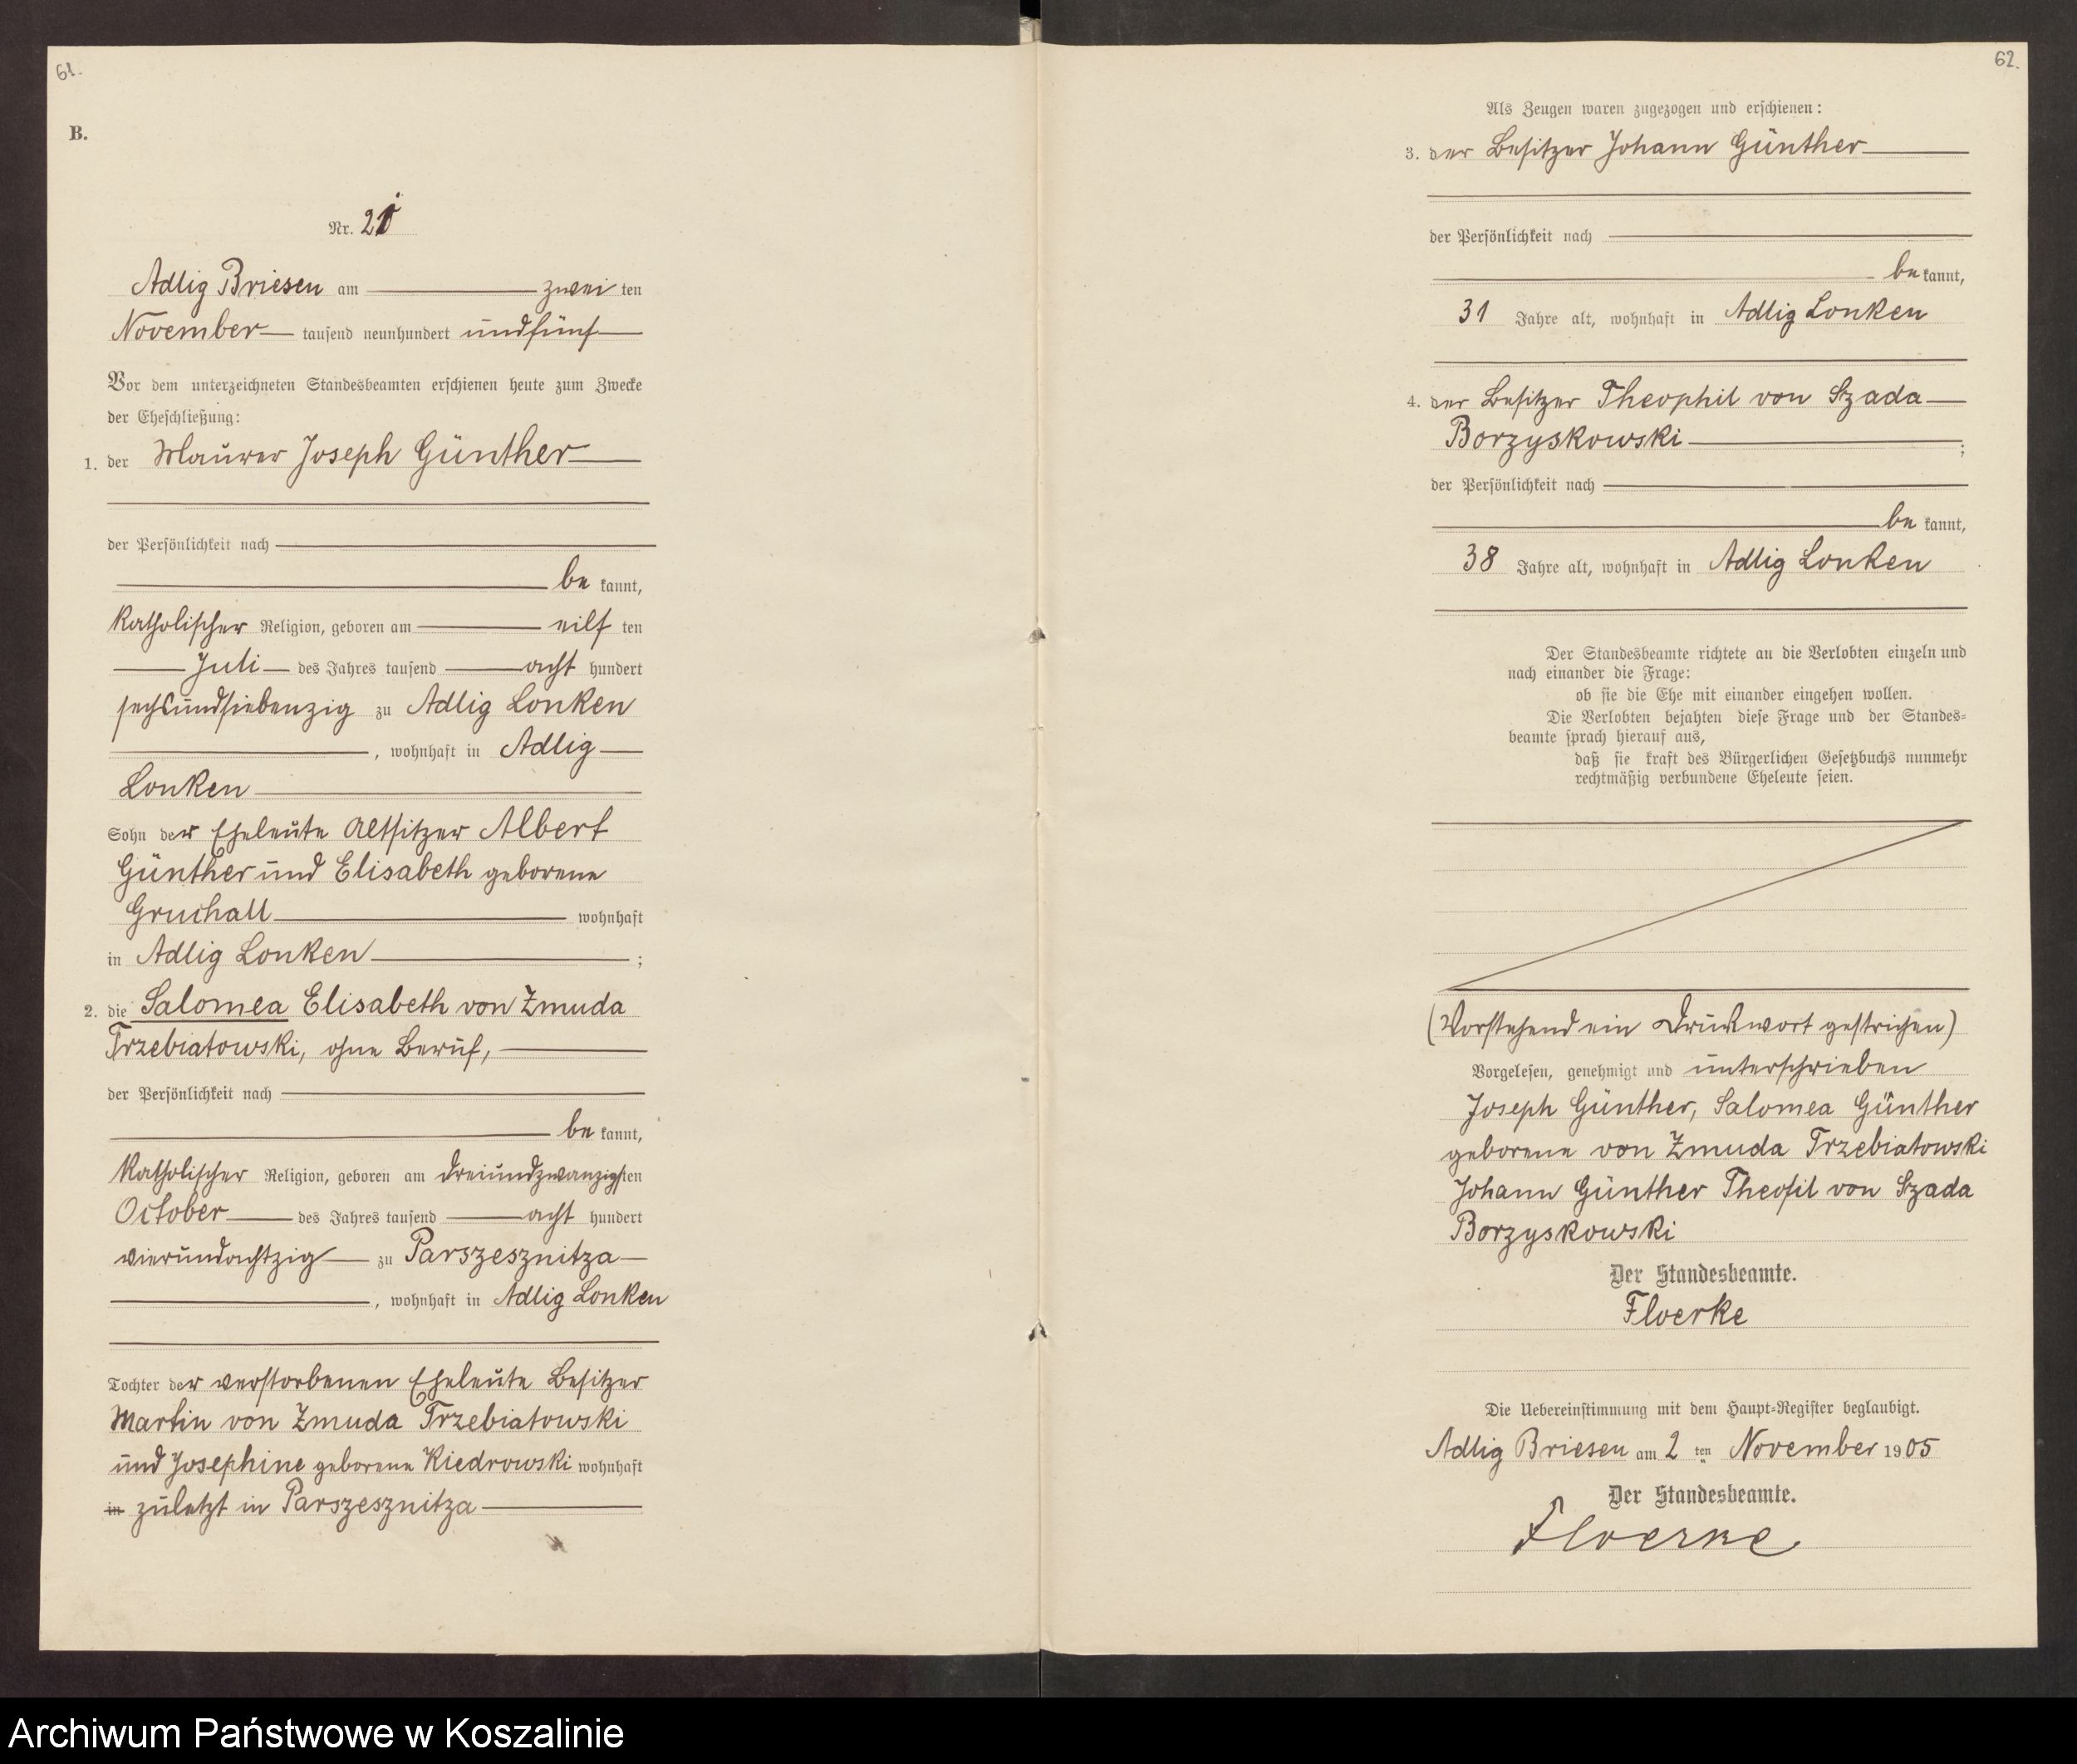 61.
B.
Nr. 21
Adlig Briesen am zwei ten
November tausend neunhundert undfünf
Vor dem unterzeichneten Standesbeamten erschienen heute zum Zwecke
der Eheschließung:
1. der Maurer Joseph Günther
der Persönlichkeit nach
be kannt,
katholischer Religion, geboren am eilf ten
Juli des Jahres tausend acht hundert
sechsundsiebenzig zu Adlig Lonken
, wohnhaft in Adlig
Lonken
Sohn der Eheleute Altsitzer Albert
Günther und Elisabeth geborene
Gruchall wohnhaft
in Adlig Lonken ;
2. die Salomea Elisabeth von Zmuda
Trzebiatowski, ohne Beruf,
der Persönlichkeit nach
be kannt,
katholischer Religion, geboren am dreiundzwanzigsten
October des Jahres tausend acht hundert
vierundachtzig zu Parszesznitza
, wohnhaft in Adlig Lonken
Tochter der verstorbenen Eheleute Besitzer
Martin von Zmuda Trzebiatowski
und Josephine geborene Kiedrowski wohnhaft
in zuletzt in Parszesznitza
62.
Als Zeugen waren zugezogen und erschienen:
3. der Besitzer Johann Günther
der Persönlichkeit nach
be kannt,
31 Jahre alt, wohnhaft in Adlig Lonken
4. der Besitzer Theophil von Szada
Borzyskowski ;
der Persönlichkeit nach
be kannt,
38 Jahre alt, wohnhaft in Adlig Lonken
Der Standesbeamte richtete an die Verlobten einzeln und
nach einander die Frage:
ob sie die Ehe mit einander eingehen wollen.
Die Verlobten bejahten diese Frage und der Standes-
beamte sprach hierauf aus,
daß sie kraft des Bürgerlichen Gesetzbuchs nunmehr
rechtmäßig verbundene Eheleute seien.
(Vorstehend ein Druckwort gestrichen)
Vorgelesen, genehmigt und unterschrieben
Joseph Günther, Salomea Günther
geborene von Zmuda Trzebiatowski
Johann Günther Theofil von Szada
Borzyskowski
Der Standesbeamte.
Floerke
Die Uebereinstimmung mit dem Haupt-Register beglaubigt.
Adlig Briesen am 2 ten November 1905
Der Standesbeamte.
Floerke
Archiwum Państwowe w Koszalinie